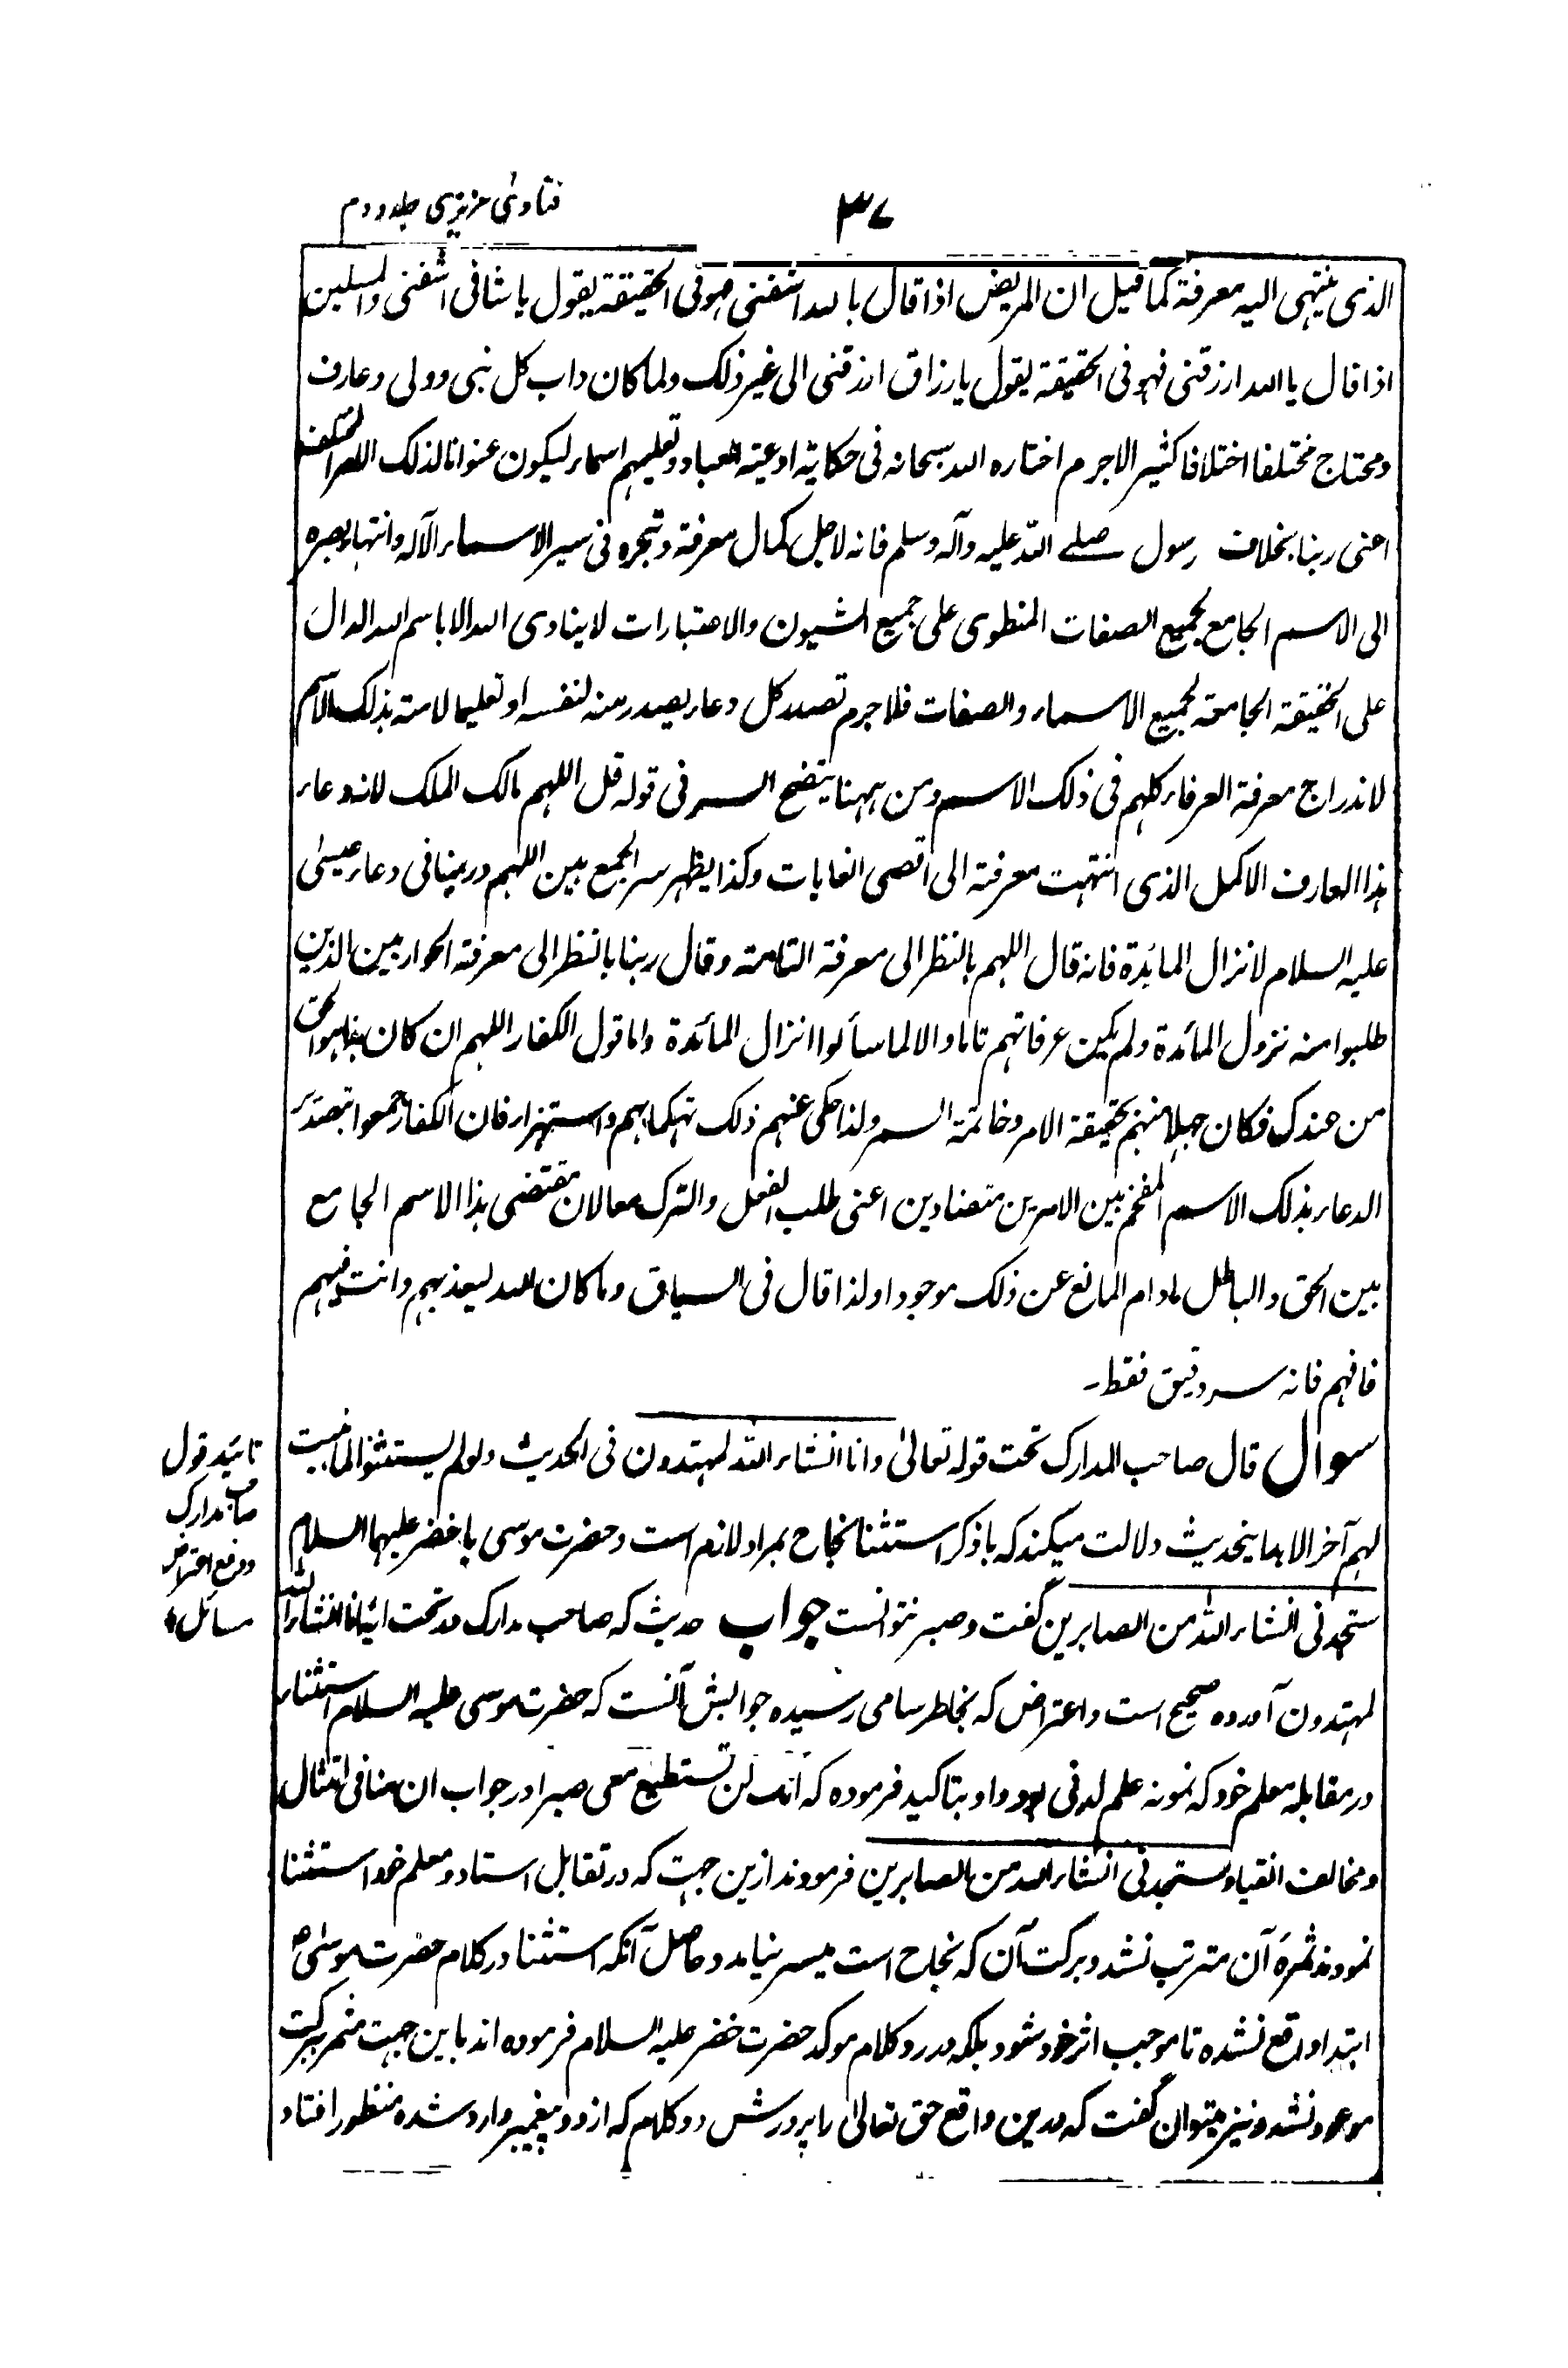 فتاوىٰ عزيزى جلد دوم
٣٧
الذى ينتهى اليه معرفة كما قيل ان المريض اذا قال يا الله اشفنى فهو فى الحقيقة يقول يا شافى اشفنى والمسلين
اذا قال يا الله ارزقنى فهو فى الحقيقة يقول يا رزاق ارزقنى الى غير ذلك ولما كان داب كل نبى وولى وعارف
ومحتاج مختلفا اختلافا كثيرا لاجرم اختاره الله سبحانه فى حكاية ادعية العباد وتعليمهم اسماء ليكون عنوانا لذلك
اعنى ربنا بخلاف رسول صلے الله عليه وآله وسلم فانه لاجل كمال معرفة وتبحره فى سير الاسماء الآله وانتهاء بصره
الى الاسم الجامع لجميع الصفات المنطوى على جميع الشيون والاعتبارات لا ينادى الله الا باسم الله الدال
على الحقيقة الجامعة لجميع الاسماء والصفات فلاجرم تصدر كل دعاء يصدر منه لنفسه او تعليما لامته بذلك الاسم
لاندراج معرفة العرفاء كلهم فى ذلك الاسم ومن ههنا يتضح السر فى قوله قل اللهم مالك الملك لانه دعاء
هذا العارف الاكمل الذى انتهت معرفته الى اقصى الغايات وكذا يظهر سر الجمع بين اللهم وربنا فى دعاء عيسىٰ
عليه السلام لانزال المائدة فانه قال اللهم بالنظر الى معرفة التامة وقال ربنا بالنظر الى معرفة الحواريين الذين
طلبوا منه نزول المائدة ولم يكن عرفانهم تاما والا لما سألوا انزال المائدة واما قول الكفار اللهم ان كان هذا هو الحق
من عندك فكان جهلا منهم بحقيقة الامر وخاتمة السر ولذا حكى عنهم ذلك تهكما بهم واستهزاء فان الكفار جمعوا بتصدير
الدعاء بذلك الاسم المفخم بين الامرين متضادين اعنى طلب الفعل والترك معا لان مقتضى هذا الاسم الجامع
بين الحق والباطل مادام المانع عن ذلك موجودا ولذا قال فى السياق وما كان الله ليعذبهم وانت فيهم
فافهم فانه سر دقيق فقط۔
سوال قال صاحب المدارك تحت قوله تعالىٰ وانا انشاء الله لمهتدون فى الحديث ولو لم يستثنوا لما بينت
لهم آخر الابد اينحديث دلالت ميكند كه با ذكر استثنا نجاح بمراد لازم است وحضرت موسى با خضر عليهما السلام
ستجدنى انشاء الله من الصابرين گفت وصبر نتوانست جواب حديث كه صاحب مدارك در تحت آية انا انشاء الله
لمهتدون آورده صحيح است واعتراض كه بخاطر سامى رسيده جوابش آنست كه حضرت موسى عليه السلام استثناء
در مقابله معلم خود كه نمونه علم لدنى بود واو بتاكيد فرموده كه انك لن تستطيع معى صبرا در جواب ان منافى امتثال
ومخالف انقياد ستجدنى انشاء الله من الصابرين فرمودند ازين جهت كه در تقابل استاد ومعلم خود استثنا
نمودند ثمرهٔ آن مترتب نشد وبركت آن كه نجاح است ميسر نيامد وحاصل آنكه استثنا در كلام حضرت موسىٰ
ابتداء واقع نشده تا موجب اثر خود شود بلكه در رد كلام موكد حضرت خضر عليه السلام فرموده اند باين جهت مثمر بركت
موعود نشد ونيز ميتوان گفت كه درين واقع حق تعالىٰ را پرورش دو كلام كه از دو پيغمبر وارد شده منظور افتاد
تائيد قول
صاحب مدارك
ودفع اعتراض
سائل